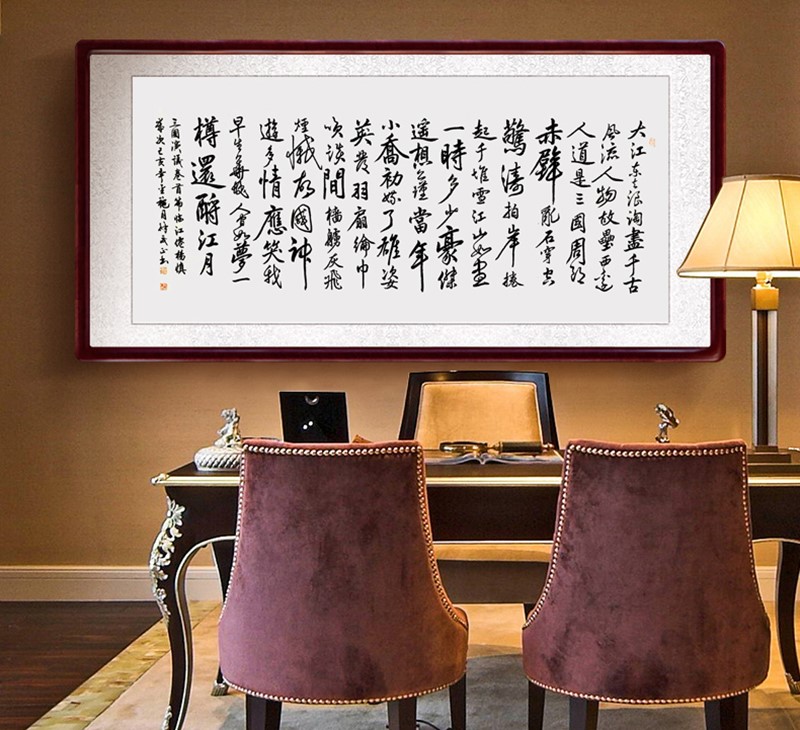 大江東去浪淘盡千古
風流人物故壘西邊
人道是三國周郎
赤壁亂石穿空
驚濤拍岸捲
起千堆雪江山如畫
一時多少豪傑
遙想公瑾當年
小喬初嫁了雄姿
英發羽扇綸巾
咲談間檣艣灰飛
煙滅故國神
遊多情應笑我
早生華髮人如夢一
樽還酹江月
三國演議卷首臨江僊楊慎
歲次己亥年月書